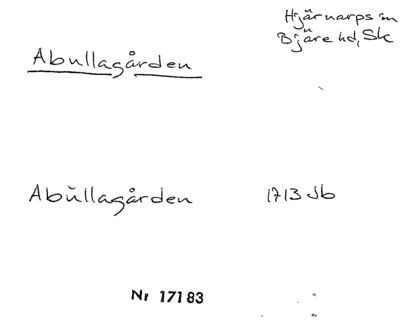 Hjärnarps sn
Bjäre hd, Sk
Abullagården
Abŭllagården 1713 Jb
Nr 17183